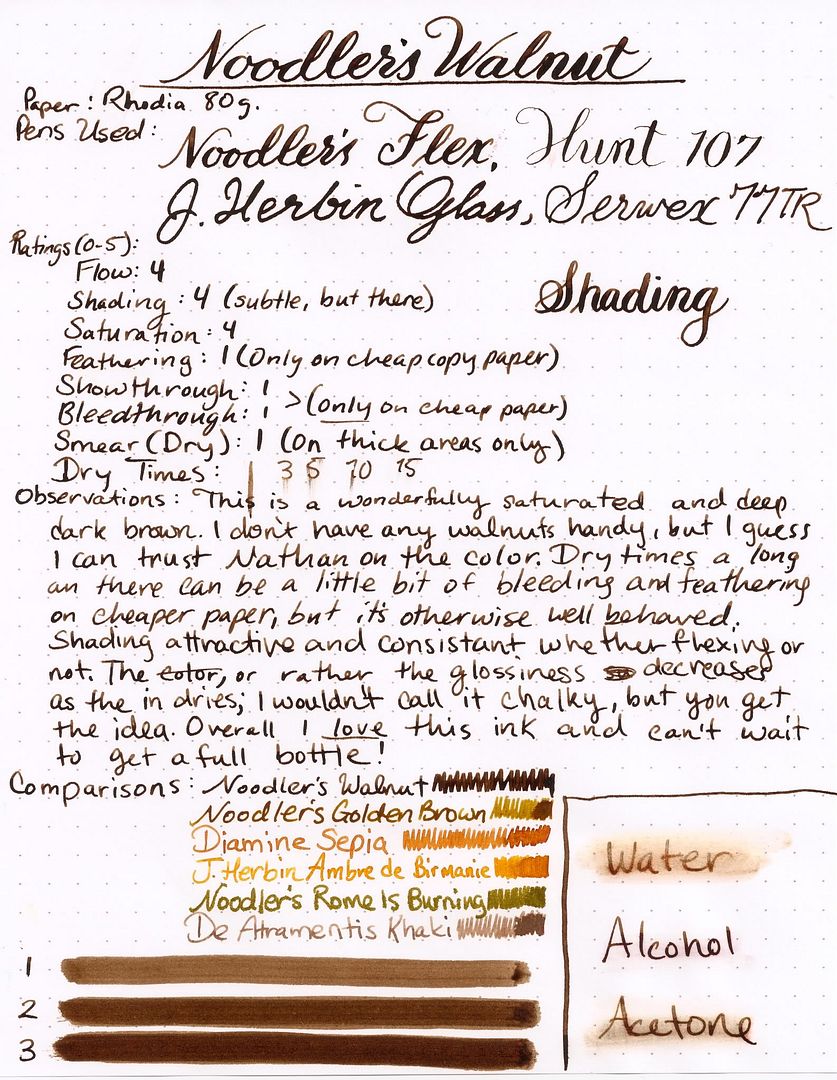 Noodler's Walnut
Paper: Rhodia 80g.
Pens Used: Noodler's Flex, Hunt 107
J. Herbin Glass, Serwex 77TR
Ratings (0-5):
Flow: 4
Shading: 4 (subtle, but there)
Shading
Saturation: 4
Feathering: 1 (Only on cheap copy paper)
Showthrough: 1
Bleedthrough: 1 > (only on cheap paper)
Smear (Dry): 1 (On thick areas only)
Dry Times: 1 3 5 10 15
Observations: This is a wonderfully saturated and deep
dark brown. I don't have any walnuts handy, but I guess
I can trust Nathan on the color. Dry times a long
an there can be a little bit of bleeding and feathering
on cheaper paper, but it's otherwise well behaved.
Shading attractive and consistant whether flexing or
not. The color, or rather the glossiness decreases
as the in dries; I wouldn't call it chalky, but you get
the idea. Overall I love this ink and can't wait
to get a full bottle!
Comparisons: Noodler's Walnut
Noodler's Golden Brown
Diamine Sepia
J. Herbin Ambre de Birmanie
Noodler's Rome Is Burning
De Atramentis Khaki
Water
Alcohol
Acetone
1
2
3